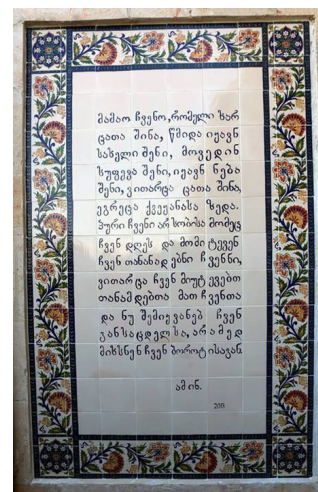 მამაო ჩვენო, რომელი ხარ
ცათა შინა, წმიდა იყავნ
სახელი შენი, მოვედინ
სუფევა შენი, იყავნ ნება
შენი, ვითარცა ცათა შინა,
ეგრეცა ქვეყანასა ზედა.
პური ჩვენი არსობისა მომეც
ჩვენ დღეს და მომიტევენ
ჩვენ თანანადებნი ჩვენნი,
ვითარცა ჩვენ მიუტევებთ
თანამდებთა მათ ჩვენთა
და ნუ შემიყვანებ ჩვენ
განსაცდელსა, არამედ
მიხსნენ ჩვენ ბოროტისაგან.
ამინ.
200